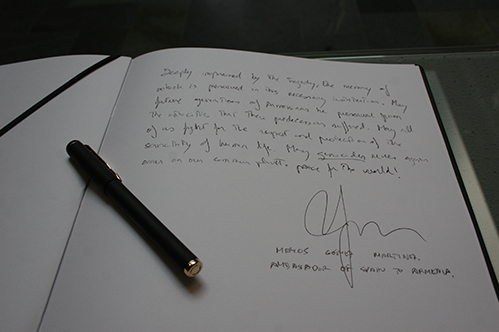 Deeply impressed by the tragedy, the memory of
which is preserved in this necessary institution. May
future generations of Armenians be preserved from
the atrocities that their predecessors suffered. May all
of us fight for the respect and protection of the
sanctity of human life. May genocides never again
occur on our common planet. peace for the world!
MARCOS GÓMEZ MARTÍNEZ.
AMBASSADOR OF SPAIN TO ARMENIA.